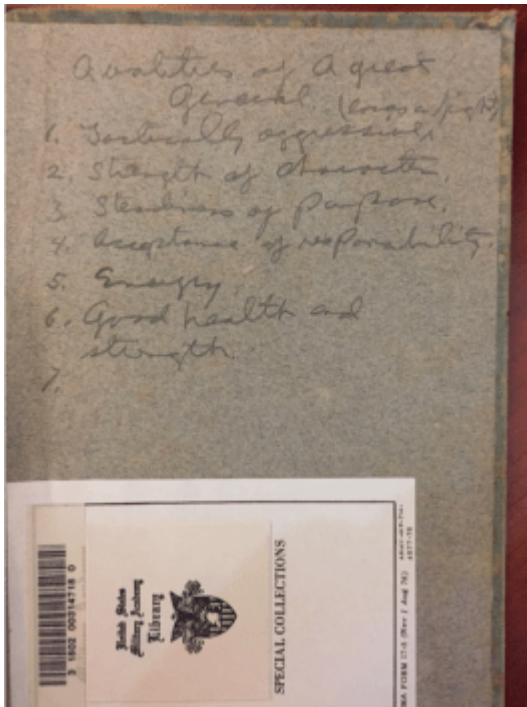 Qualities of a great
General. (loves a fight)
1. Tactically aggressive
2. Strength of character.
3. Steadiness of purpose.
4. Acceptance of responsibility.
5. Energy.
6. Good health and
strength.
7.
3 1602 00314718 0
United States
Military Academy
Library
SPECIAL COLLECTIONS